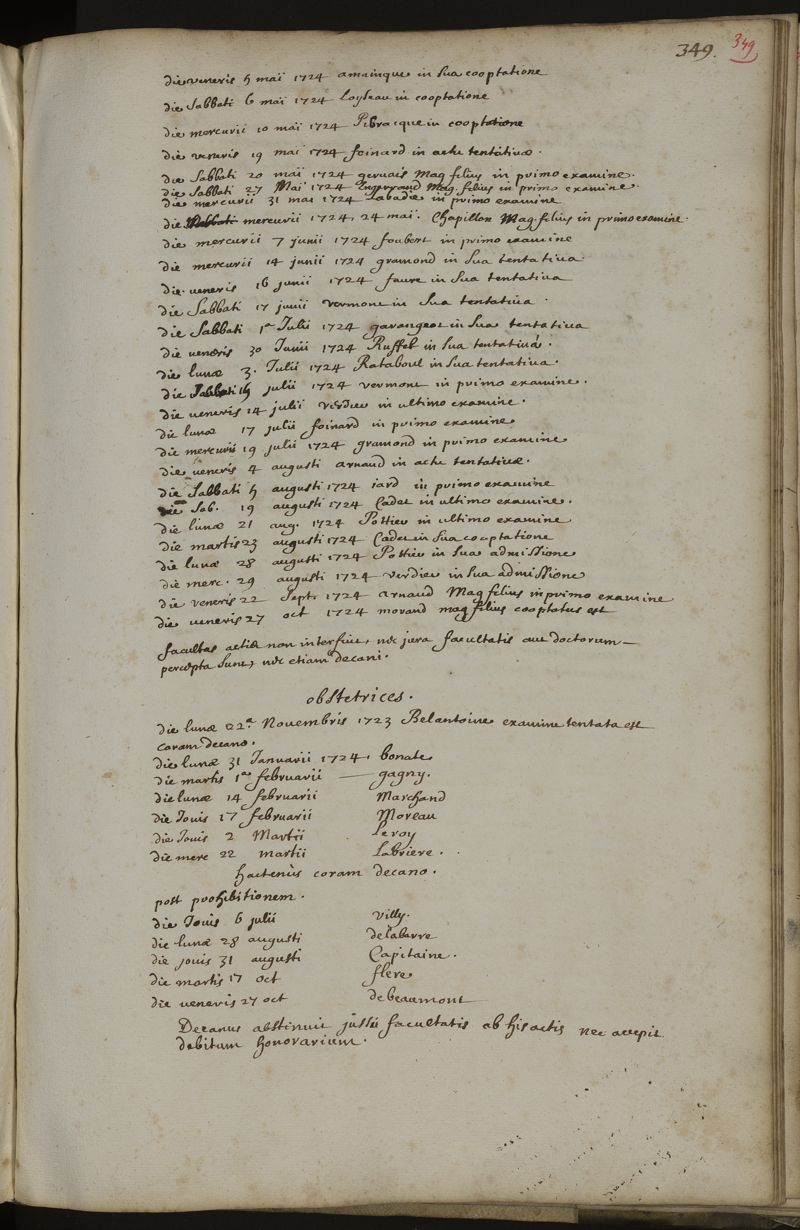 349. 349
die veneris 5 maii 1724 amainque in sua cooptatione
die Sabbati 6 maii 1724 loyseau in cooptatione
die mercurii 10 maii 1724 Pibracque in cooptatione
die veneris 19 maii 1724 foinard in actu tentativæ.
die Sabbati 20 maii 1724 gervais Mag filius in primo examine.
die Sabbati 27 Maii 1724 Mag. filius in primo examine.
die mercurii 31 mai 1724 Labadie in primo examine
die Sabbati mercurii 1724, 24 maii. Chapillon Mag filius in primo examine.
die mercurii 7 junii 1724 foubert in primo examine
die mercurii 14 junii 1724 gramond in sua tentativa
die veneris 16 junii 1724 faure in sua tentativa
die Sabbati 17 junii vermont in sua tentativa.
die Sabbati 1a Julii 1724 garangeot in sua tentativa
die veneris 30 Junii 1724 Ruffel in sua tentativa.
die lunæ 3. Julii 1724 Rataboul in sua tentativa.
die Sabbati 15 julii 1724 vermont in primo examine.
die veneris 14 julii verdier in ultimo examine.
die lunæ 17 julii foinard in primo examine
die mercurii 19 julii 1724 gramond in primo examine
die veneris 4 augusti arnaud in actu tentativæ.
die Sabbati 5 augusti 1724 iard in primo examine
die Sab. 19 augusti 1724 Cadet in ultimo examine.
die lunæ 21 aug. 1724 Pottier in ultimo examine
die martis 23 augusti 1724 Cadet in sua cooptatione
die lunæ 28 augusti 1724 Pottier in sua admissione
die merc. 29 augusti 1724 verdier in sua admissione
die veneris 22 Sept. 1724 arnaud Mag filius in primo examine
die veneris 27 oct 1724 morand mag filius cooptatus est
facultas actis non interfuit, nec jura facultatis aut doctorum
percepta sunt, nec etiam decani.
obstetrices.
die lunæ 22a Novembris 1723 Belantoine examine tentata est
coram decano.
die lunæ 31 Januarii 1724. bonate
die martis 1a februarii — gagny.
die lunæ 14 februarii Marchand
die Jovis 17 februarii Moreau
die Jovis 2 Martii Leroy
die merc 22 martii Labriere.
hactenùs coram decano.
post prohibitionem.
die Jovis 6 julii villy.
die lunæ 28 augusti delabarre
die jovis 31 augusti Capitaine.
die martis 17 oct flere
die veneris 27 oct debeaumont
Decanus abstinuit jussu facultatis ab his actis nec accepit
debitum honorarium.